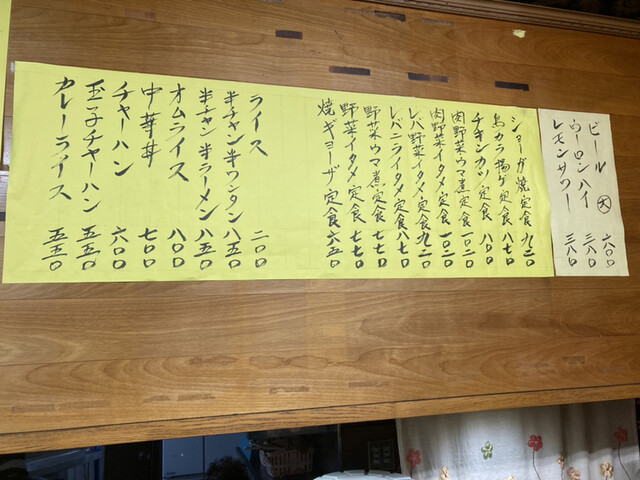 ビール 大 六〇〇
ウーロンハイ 三八〇
レモンサワー 三八〇
ショーガ焼定食 九二〇
鳥カラ揚ゲ定食 八七〇
チキンカツ定食 八〇〇
肉野菜ウマ煮定食 一〇二〇
肉野菜イタメ定食 一〇二〇
レバ野菜イタメ定食 九二〇
レバニライタメ定食 七七〇
野菜ウマ煮定食 七七〇
野菜イタメ定食 七七〇
焼ギョーザ定食 六五〇
ライス 二〇〇
半チャン半ワンタン 八五〇
半チャン半ラーメン 八五〇
オムライス 八〇〇
中華丼 七〇〇
チャーハン 六〇〇
玉子チャーハン 五五〇
カレーライス 五五〇